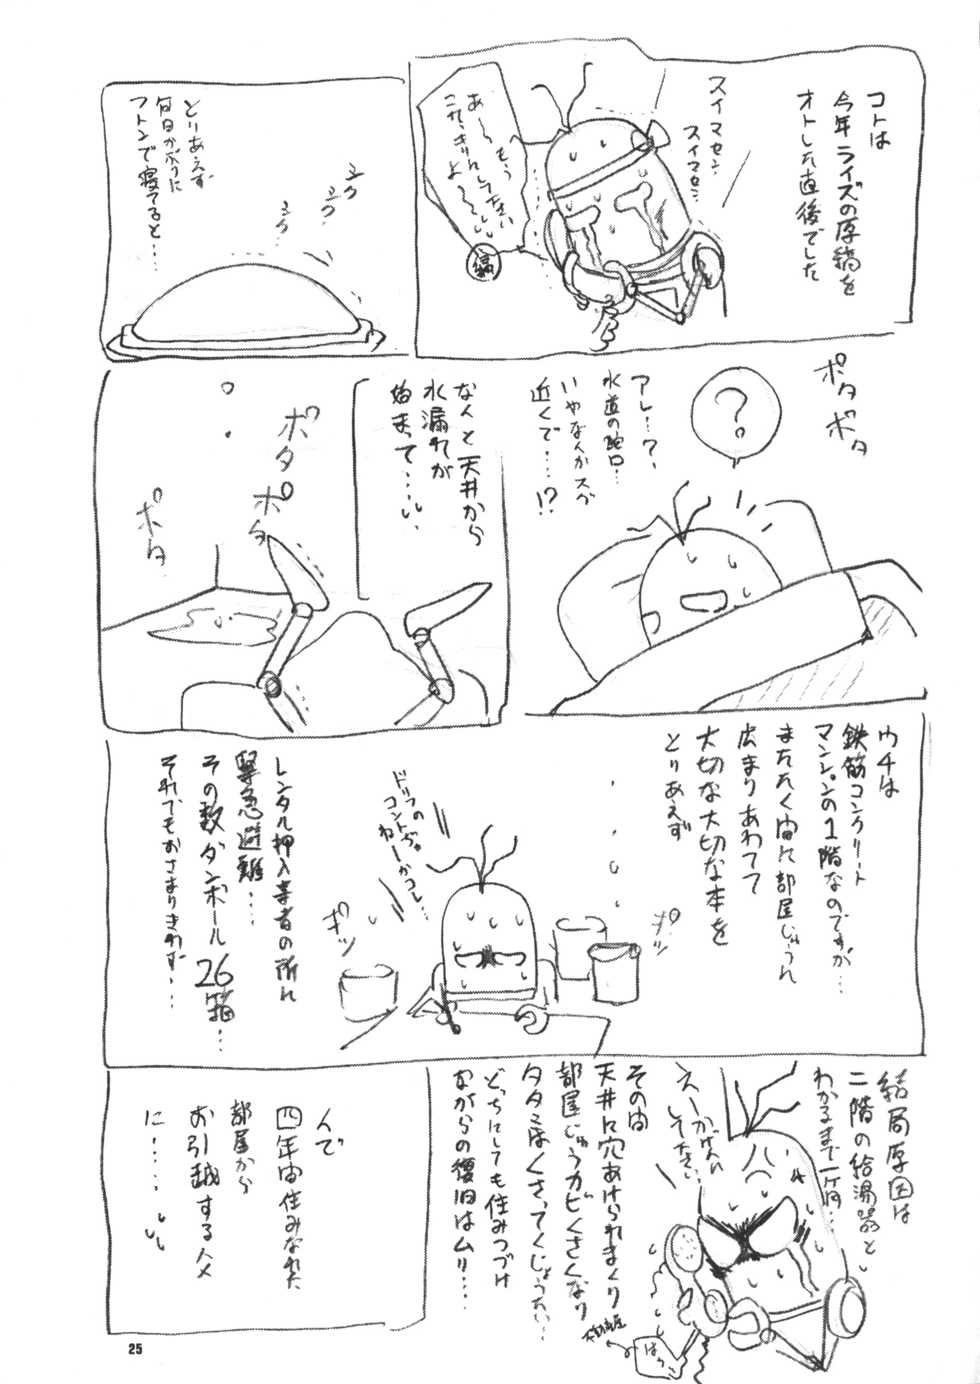 コトは
今年ライズの原稿を
オトした直後でした
スイマセン
スイマセン…
あ〜〜もう
これっきりにして下さい
よ〜〜
編
とりあえず
毎日かぶりに
フトンで寝てると…
シク
シク
シク
ポタ
ポタ
?
アレ…?
水道の蛇口…
いやなんかスグ
近くで…!?
なんと天井から
水漏れが
始まって……
ポタ
ポタ
ポタ
ウチは
鉄筋コンクリート
マンションの1階なのですが…
またたく間に部屋じゅうに
広まりあわてて
大切な大切な本を
とりあえず
ドリフの
コントぢゃ
ねーかコレ…
ポッ
ピッ
レンタル押入業者の所に
緊急避難…
その数ダンボール26箱…
それでもおさまりきれず…
結局原因は
二階の給湯器と
わかるまで一ヶ月…
えーかげんに
してくださいっ
その間
天井に穴あけられまくり
部屋じゅうカビくさくなり
タタミはくさってくじょうたい…
どっちにしても住みつづけ
ながらの復旧はムリ…
はっ
大家
んで
四年間住みなれた
部屋から
お引越するハメ
に……
25